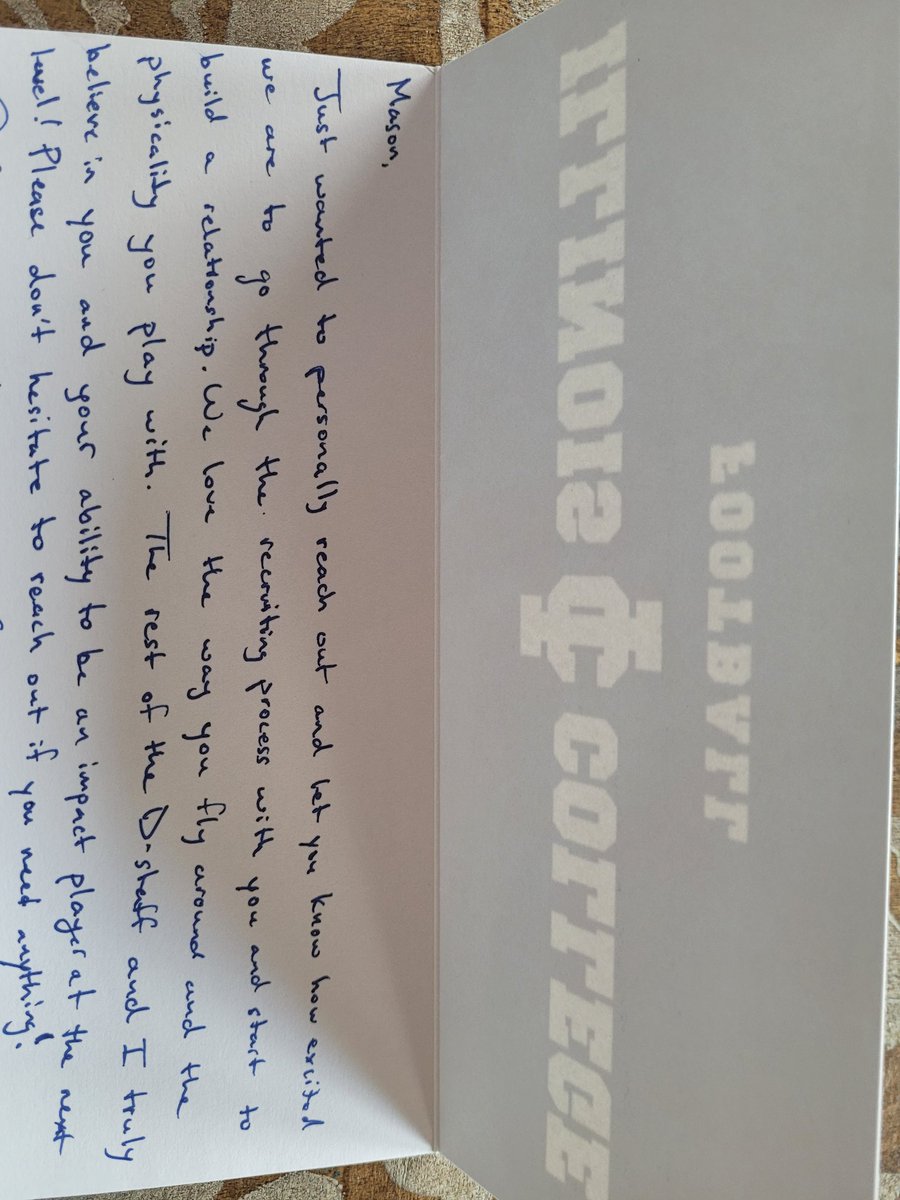 ILLINOIS IC COLLEGE
FOOTBALL
Mason,
Just wanted to personally reach out and let you know how excited
we are to go through the recruiting process with you and start to
build a relationship. We love the way you fly around and the
physicality you play with. The rest of the D-staff and I truly
believe in you and your ability to be an impact player at the next
level! Please don't hesitate to reach out if you need anything!